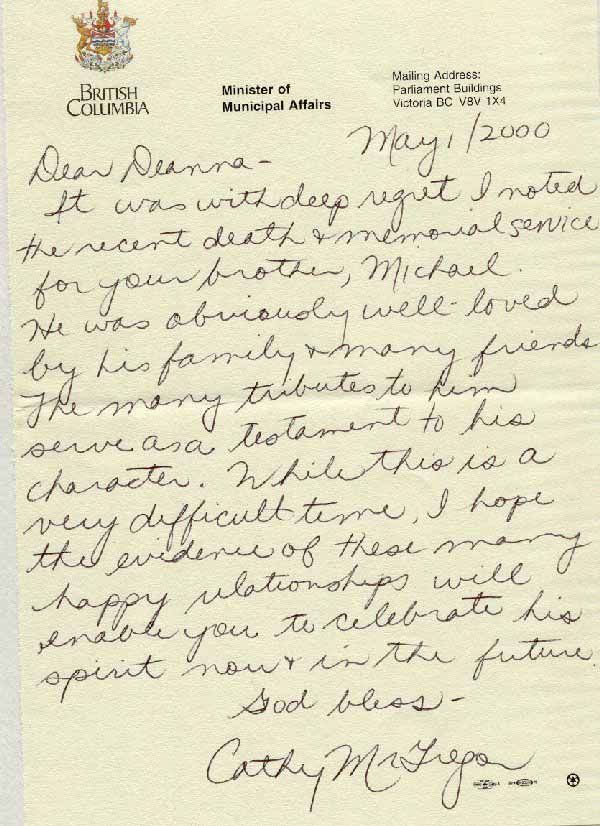 BRITISH
COLUMBIA
Minister of
Municipal Affairs
Mailing Address:
Parliament Buildings
Victoria BC V8V 1X4
May 1/2000
Dear Deanna -
It was with deep regret I noted
the recent death & memorial service
for your brother, Michael.
He was obviously well-loved
by his family & many friends
The many tributes to him
serve as a testament to his
character. While this is a
very difficult time, I hope
the evidence of these many
happy relationships will
enable you to celebrate his
spirit now & in the future.
God bless -
Cathy McGregor